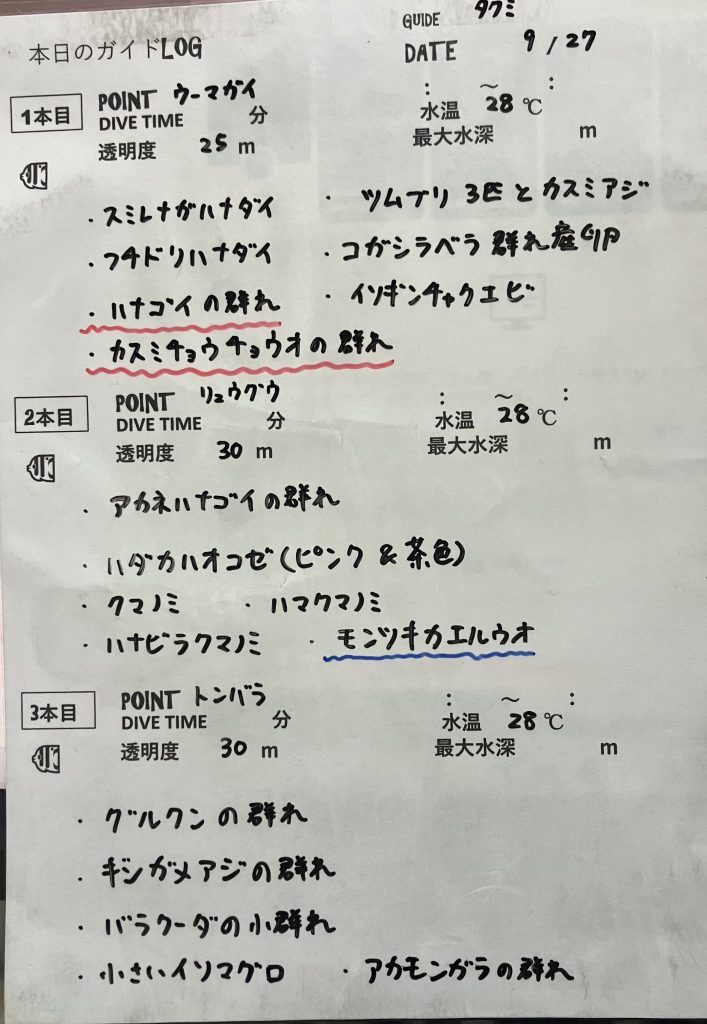 GUIDE タクミ
本日のガイドLOG
DATE 9/27
1本目 POINT ウーマガイ : ～ :
DIVE TIME 分 水温 28℃
透明度 25 m 最大水深 m
・スミレナガハナダイ ・ツムブリ 3匹とカスミアジ
・フチドリハナダイ ・コガシラベラ 群れ産卵
・ハナゴイの群れ ・イソギンチャクエビ
・カスミチョウチョウオの群れ
2本目 POINT リュウグウ : ～ :
DIVE TIME 分 水温 28℃
透明度 30 m 最大水深 m
・アカネハナゴイの群れ
・ハダカハオコゼ(ピンク & 茶色)
・クマノミ ・ハマクマノミ
・ハナビラクマノミ ・モンツキカエルウオ
3本目 POINT トンバラ : ～ :
DIVE TIME 分 水温 28℃
透明度 30 m 最大水深 m
・グルクンの群れ
・ギンガメアジの群れ
・バラクーダの小群れ
・小さいイソマグロ ・アカモンガラの群れ